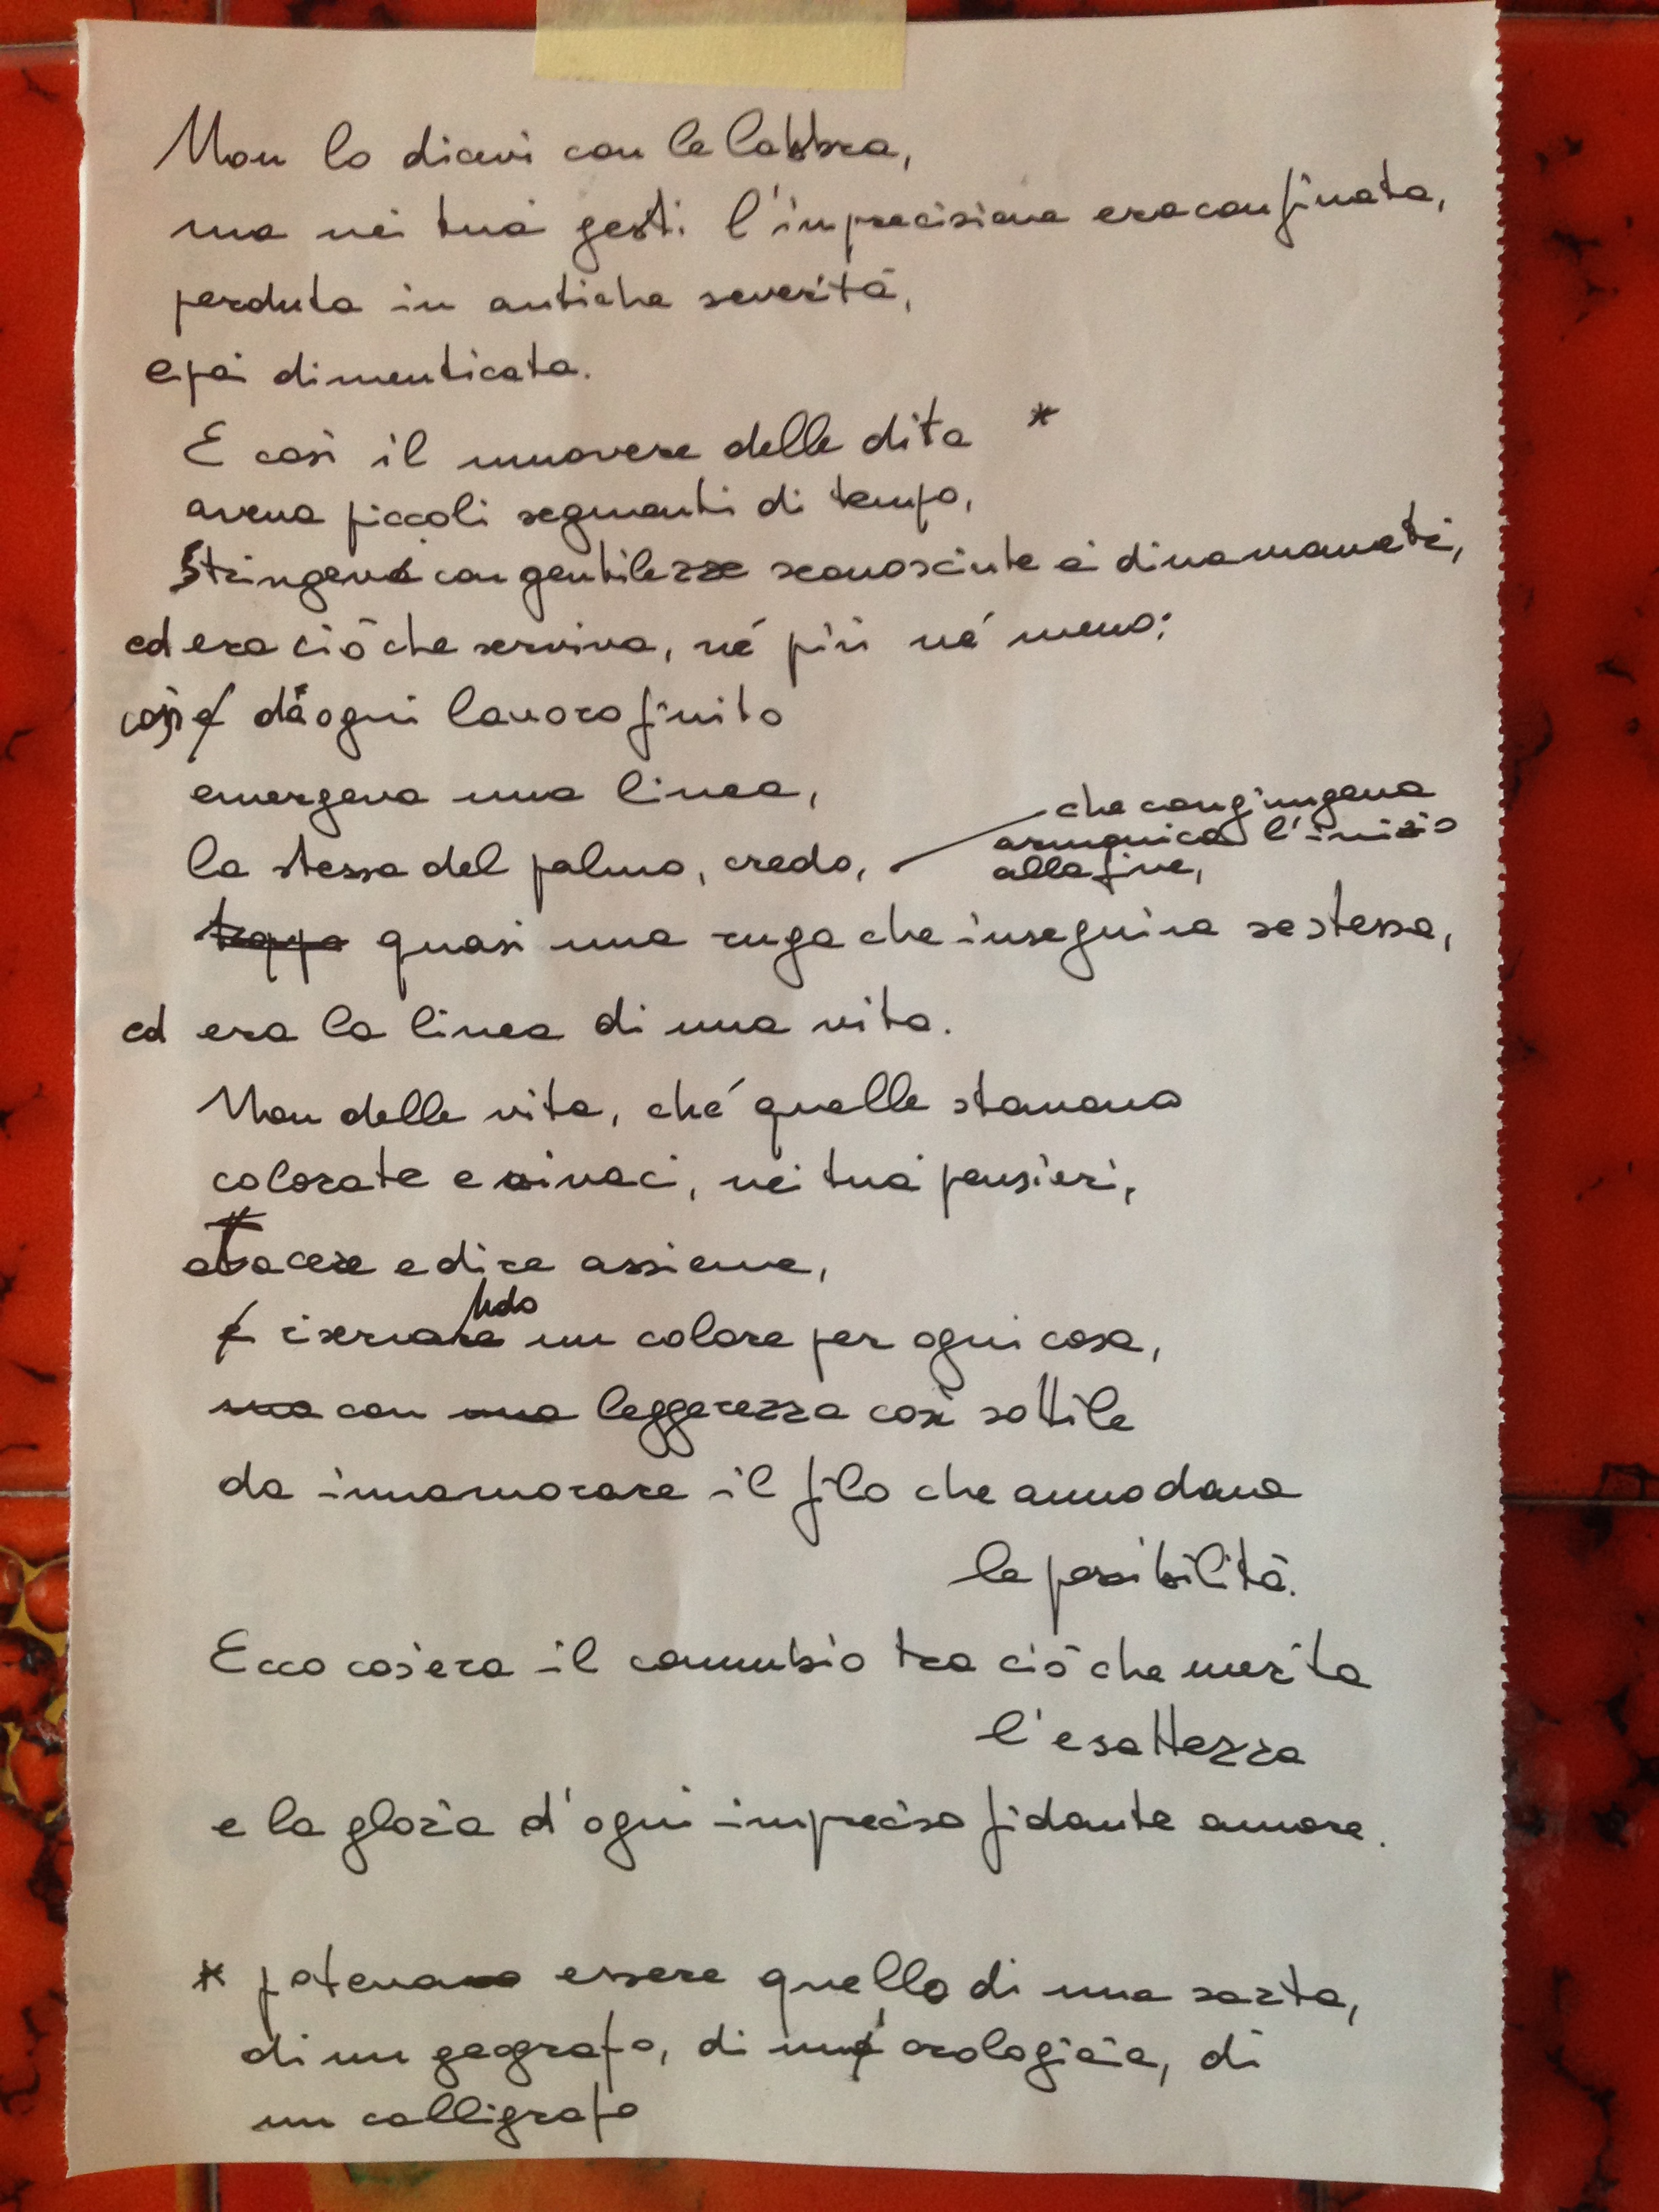 Non lo dicevi con le labbra,
ma nei tuoi gesti l'imprecisione era confinata,
perduta in antiche severità,
e poi dimenticata.
E così il muovere delle dita *
aveva piccoli segmenti di tempo,
stringevi con gentilezze sconosciute ai dinamometri,
ed era ciò che serviva, né più né meno:
così da ogni lavoro finito
emergeva una linea,
che congiungeva
armonica l'inizio
la stessa del palmo, credo,
alla fine,
troppo quasi una ruga che inseguiva se stessa,
ed era la linea di una vita.
Non delle vite, ché quelle stavano
colorate e vivaci, nei tuoi pensieri,
a tacere e dire assieme,
riservando un colore per ogni cosa,
ma con una leggerezza così sottile
da innamorare il filo che annodava
le possibilità.
Ecco cos'era il connubio tra ciò che merita
l'esattezza
e la gloria d'ogni impreciso fidante amore.
* poteva essere quello di una sarta,
di un geografo, di un' orologiaia, di
un calligrafo